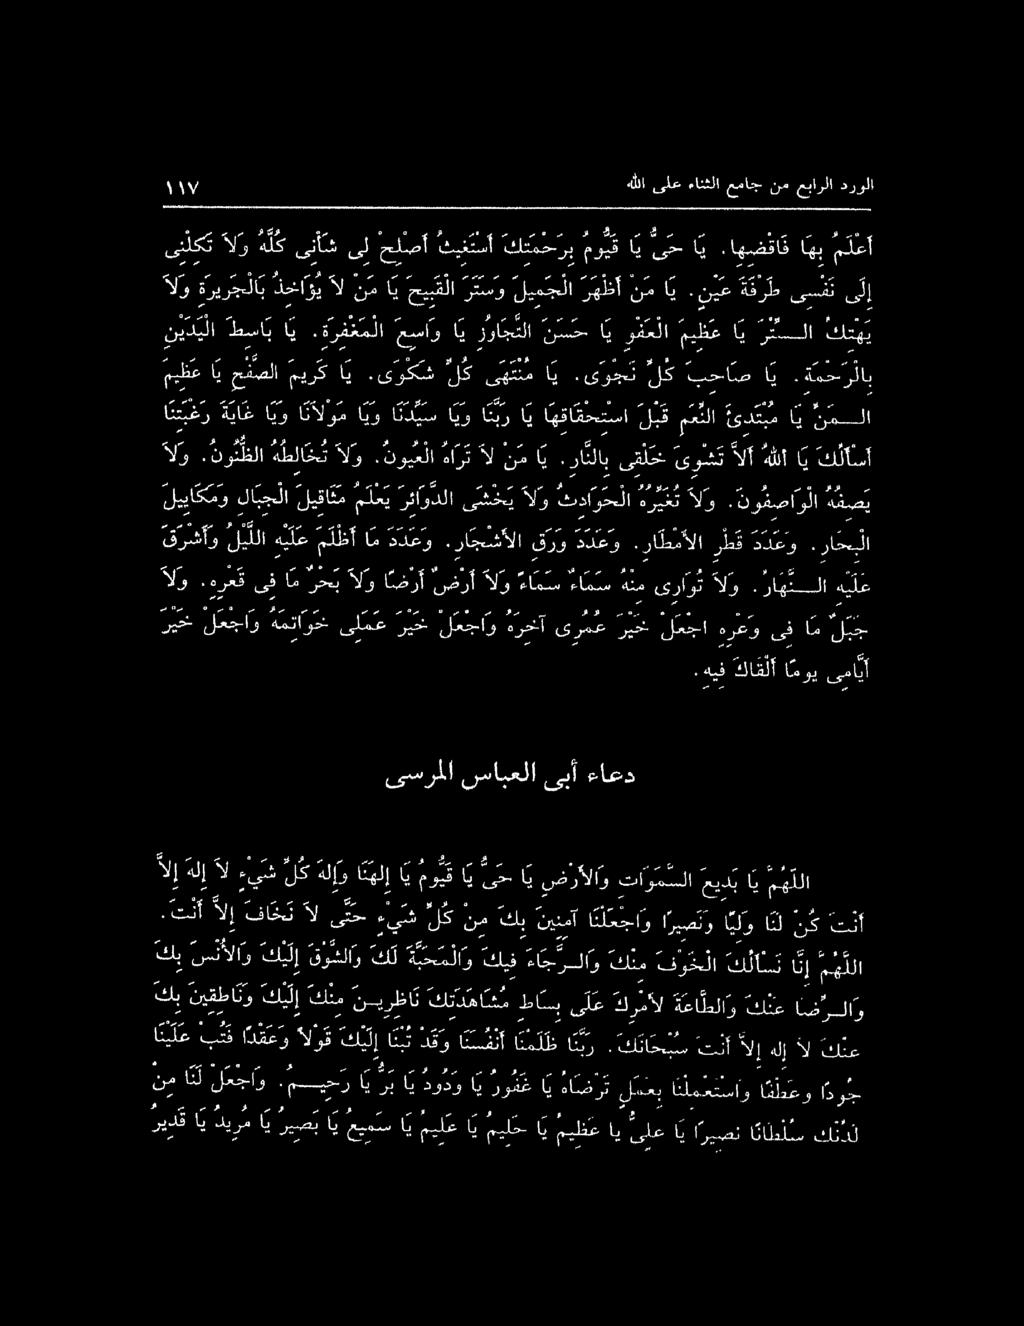 الورد الرابع من جامع الثناء على الله ١١٧
أَعْلَمُ بِهَا فَاقْضِهَا. يَا حَىُّ يَا قَيُّومُ بِرَحْمَتِكَ أَسْتَغِيثُ أَصْلِحْ لِى شَأْنِى كُلَّهُ وَلاَ تَكِلْنِى
إِلَى نَفْسِى طَرْفَةَ عَيْنٍ. يَا مَنْ أَظْهَرَ الْجَمِيلَ وَسَتَرَ الْقَبِيحَ يَا مَنْ لاَ يُؤَاخِذُ بَالْجَرِيرَةِ وَلاَ
يَهْتِكُ الـسِّتْرَ يَا عَظِيمَ الْعَفْوِ يَا حَسَنَ التَّجَاوُزِ يَا وَاسِعَ الْمَغْفِرَةِ. يَا بَاسِطَ الْيَدَيْنِ
بِالْرَحْمَةِ. يَا صَاحِبَ كُلِّ نَجْوَى. يَا مُنْتَهَى كُلِّ شَكْوَى. يَا كَرِيمَ الصَّفْحِ يَا عَظِيمَ
الـمَنِّ يَا مُبْتَدِئَ النِّعَمِ قَبْلَ اسْتِحْقَاقِهَا يَا رَبَّنَا وَيَا سَيِّدَنَا وَيَا مَوْلاَنَا وَيَا غَايَةَ رَغْبَتِنَا
أَسْأَلُكَ يَا اللهُ أَلاَّ تَشْوِىَ خَلْقِى بِالنَّارِ. يَا مَنْ لاَ تَرَاهُ الْعُيونُ. وَلاَ تُخَالِطُهُ الظُّنُونُ. وَلاَ
يَصِفُهُ الْوَاصِفُونَ. وَلاَ تُغَيِّرُهُ الْحَوَادِثُ وَلاَ يَخْشَى الدَّوَائِرَ يَعْلَمُ مَثَاقِيلَ الْجِبَالِ وَمَكَايِيلَ
الْبِحَارِ. وَعَدَدَ قَطْرِ الأَمْطَارِ. وَعَدَدَ وَرَقِ الأَشْجَارِ. وَعَدَدَ مَا أَظْلَمَ عَلَيْهِ اللَّيْلُ وَأَشْرَقَ
عَلَيْهِ الـنَّهَارُ. وَلاَ تُوَارِى مِنْهُ سَمَاءٌ سَمَاءً وَلاَ أَرْضٌ أَرْضًا وَلاَ بَحْرٌ مَا فِى قَعْرِهِ. وَلاَ
جَبَلٌ مَا فِى وَعْرِهِ اجْعَلْ خَيْرَ عُمُرِى آخِرَهُ وَاجْعَلْ خَيْرَ عَمَلِى خَوَاتِمَهُ وَاجْعَلْ خَيْرَ
أَيَّامِى يومًا أَلْقَاكَ فِيهِ.
دعاء أبى العباس المرسى
اللَّهُمَّ يَا بَدِيعَ السَّمَوَاتِ وَالأَرْضِ يَا حَىُّ يَا قَيُّومُ يَا إِلهَنَا وَإِلهَ كُلِّ شَيْءٍ لاَ إِلهَ إِلاَّ
أَنْتَ كُنْ لَنَا وَلِيّا وَنَصِيرًا وَاجْعَلْنَا آمِنِينَ بِكَ مِنْ كُلِّ شَيْءٍ حَتَّى لاَ نَخَافَ إِلاَّ أَنْتَ.
اللَّهُمَّ إِنَّا نَسْأَلُكَ الْخَوْفَ مِنْكَ وَالـرَّجَاءَ فِيكَ وَالْمَحَبَّةَ لَكَ وَالشَّوْقَ إِلَيْكَ وَالأُنْسَ بِكَ
وَالـرِّضَا عَنْكَ وَالطَّاعَةَ لأَمْرِكَ عَلَى بِسَاطِ مُشَاهَدَتِكَ نَاظِرِيـنَ مِنْكَ إِلَيْكَ وَنَاطِقِينَ بِكَ
عَنْكَ لاَ إِله إِلاَّ أَنْتَ سُبْحَانَكَ. رَبَّنَا ظَلَمْنَا أَنْفُسَنَا وَقَدْ تُبْنَا إِلَيْكَ قَوْلاً وَعَقْدًا فَتُبْ عَلَيْنَا
جُودًا وعَطْفًا واسْتَعْمِلْنَا بِعَمَلٍ تَرْضَاهُ يَا غَفُورُ يَا وَدُودُ يَا بَرُّ يَا رَحِيـمُ. وَاجْعَلْ لَنَا مِنْ
لَدُنْكَ سُلْطَانًا نَصِيرًا يَا عَلِىُّ يا عَظِيمُ يَا حَلِيمُ يَا عَلِيمُ يَا سَمِيعُ يَا بَصِيرُ يَا مُرِيدُ يَا قَدِيرُ